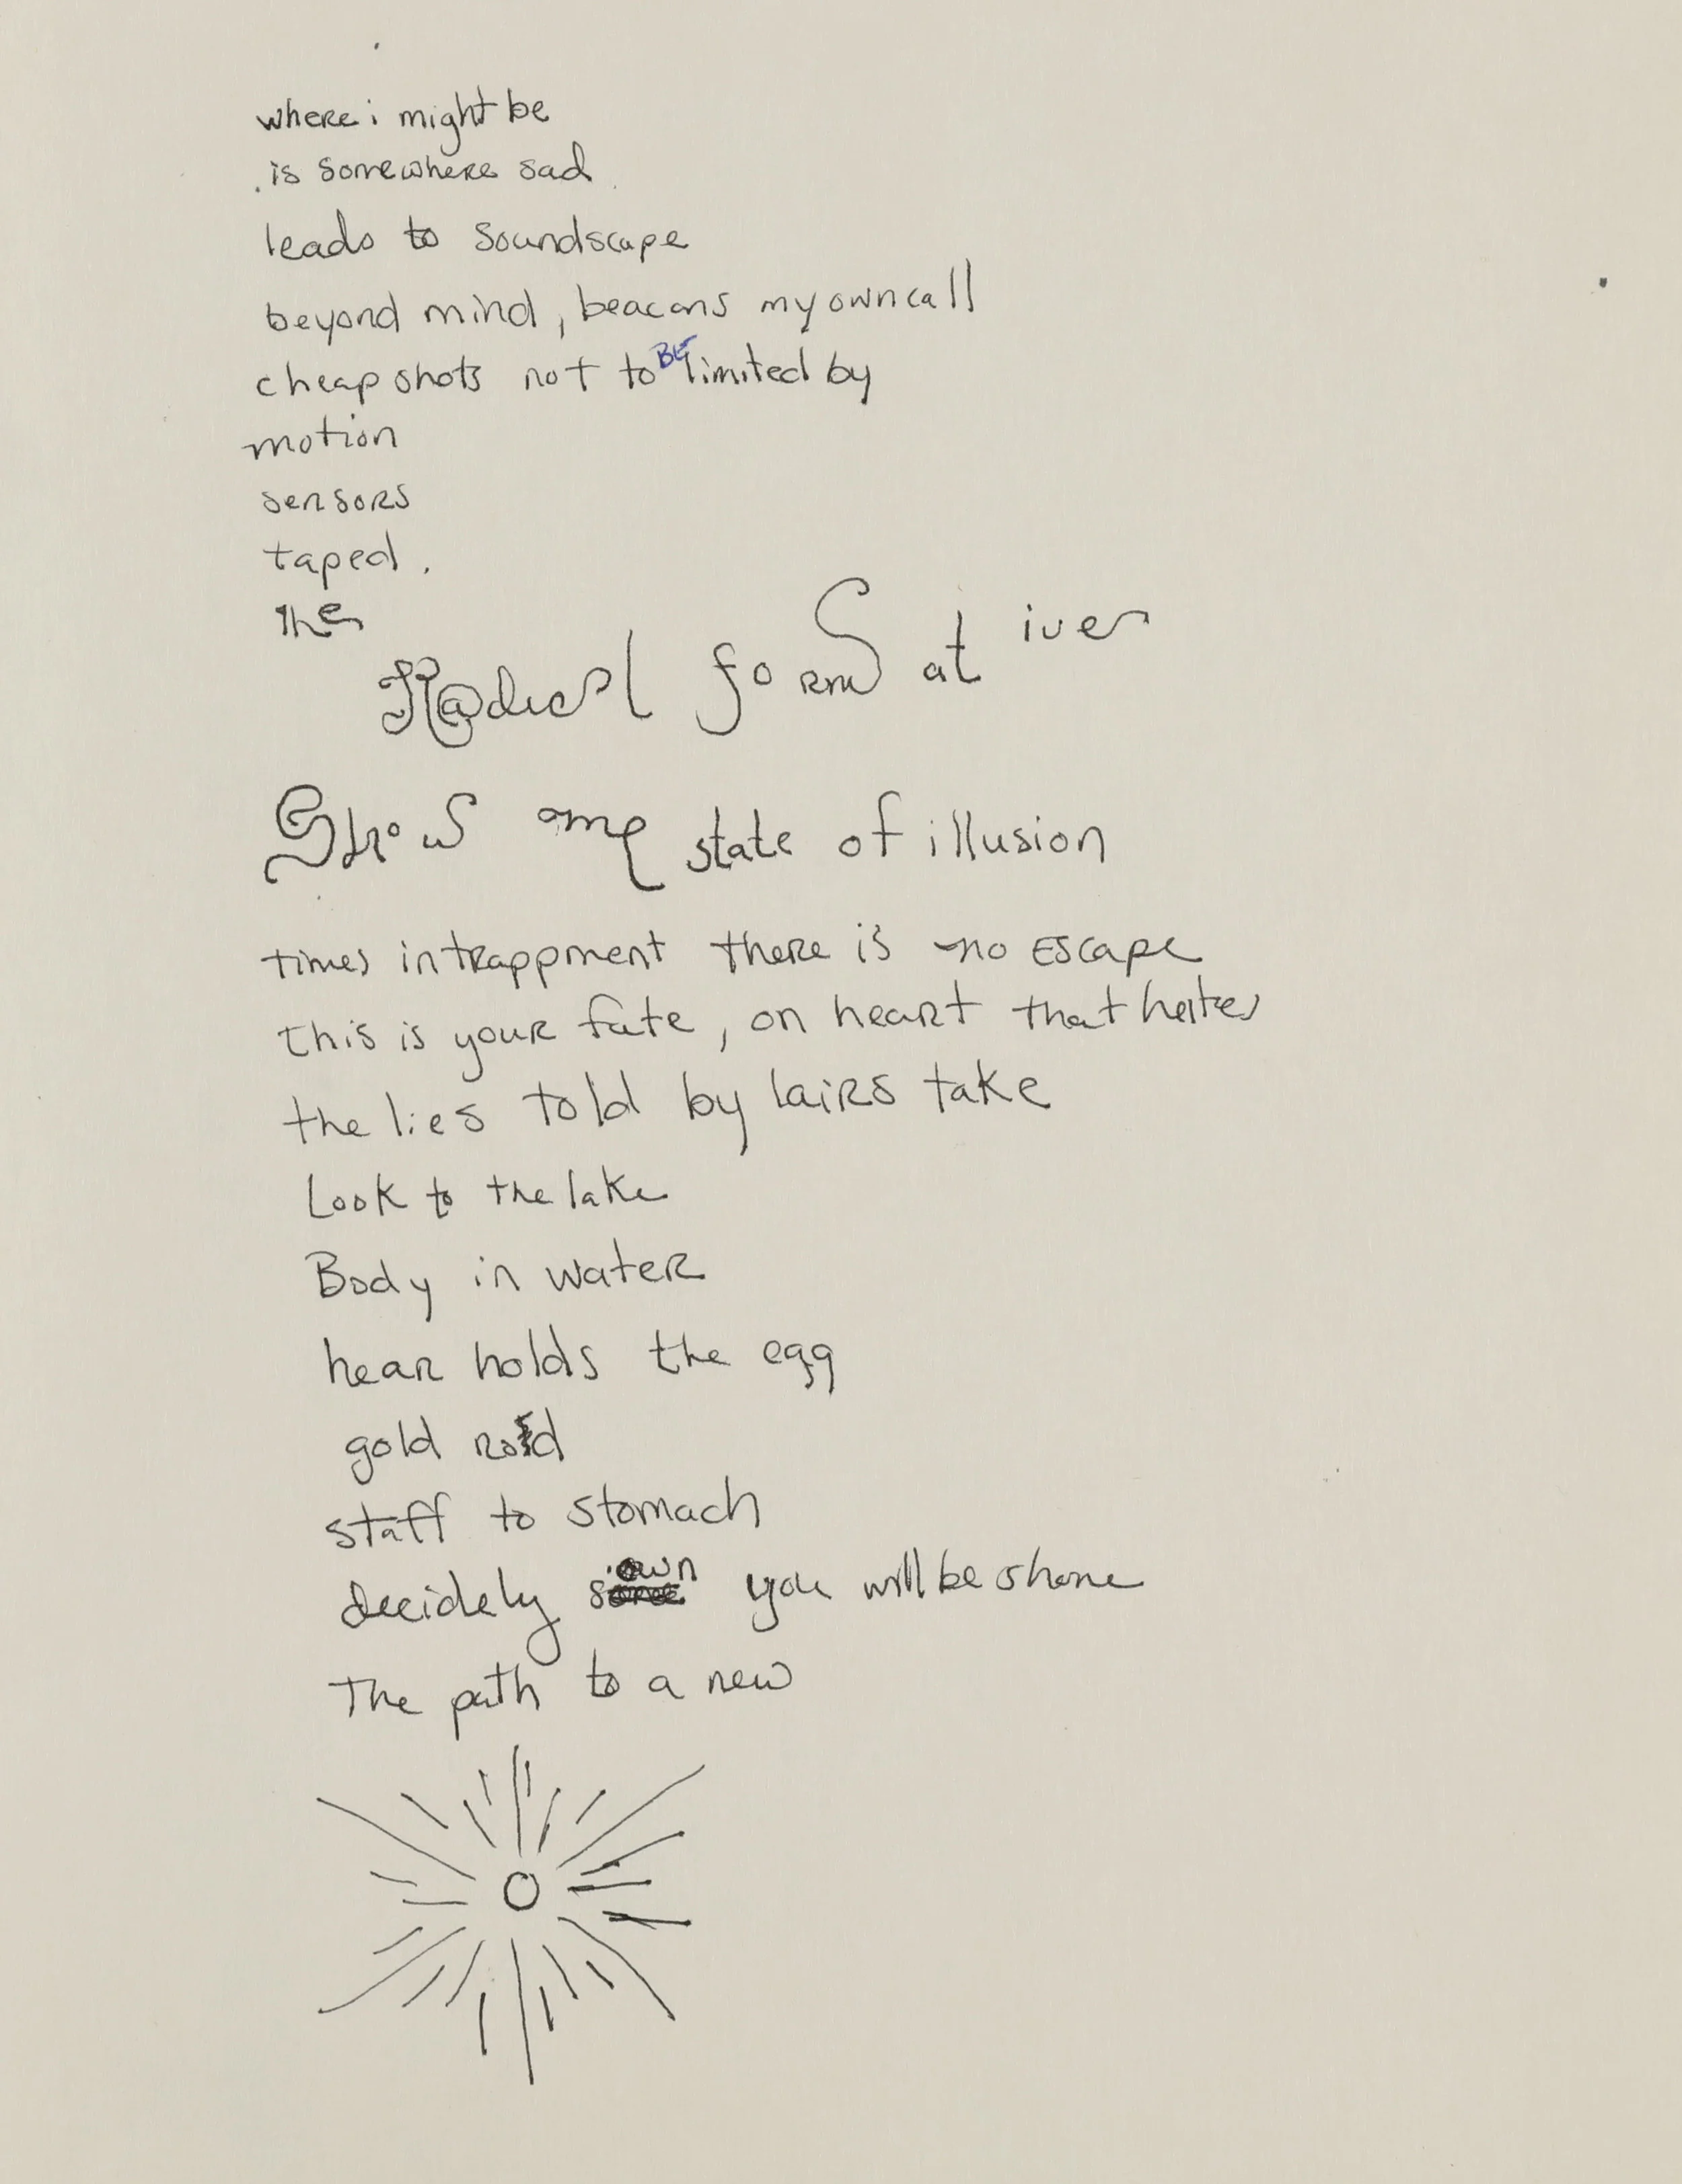 where i might be
is somewhere sad
leads to soundscape
beyond mind, beacons my own call
cheap shots not to BE limited by
motion
sensors
taped.
the
R@dical formative
Show me state of illusion
times intrappment there is no escape
this is your fate, on heart that hates
the lies told by lairs take
Look to the lake
Body in water
hear holds the egg
gold rod
staff to stomach
decidely own you will be shone
The path to a new